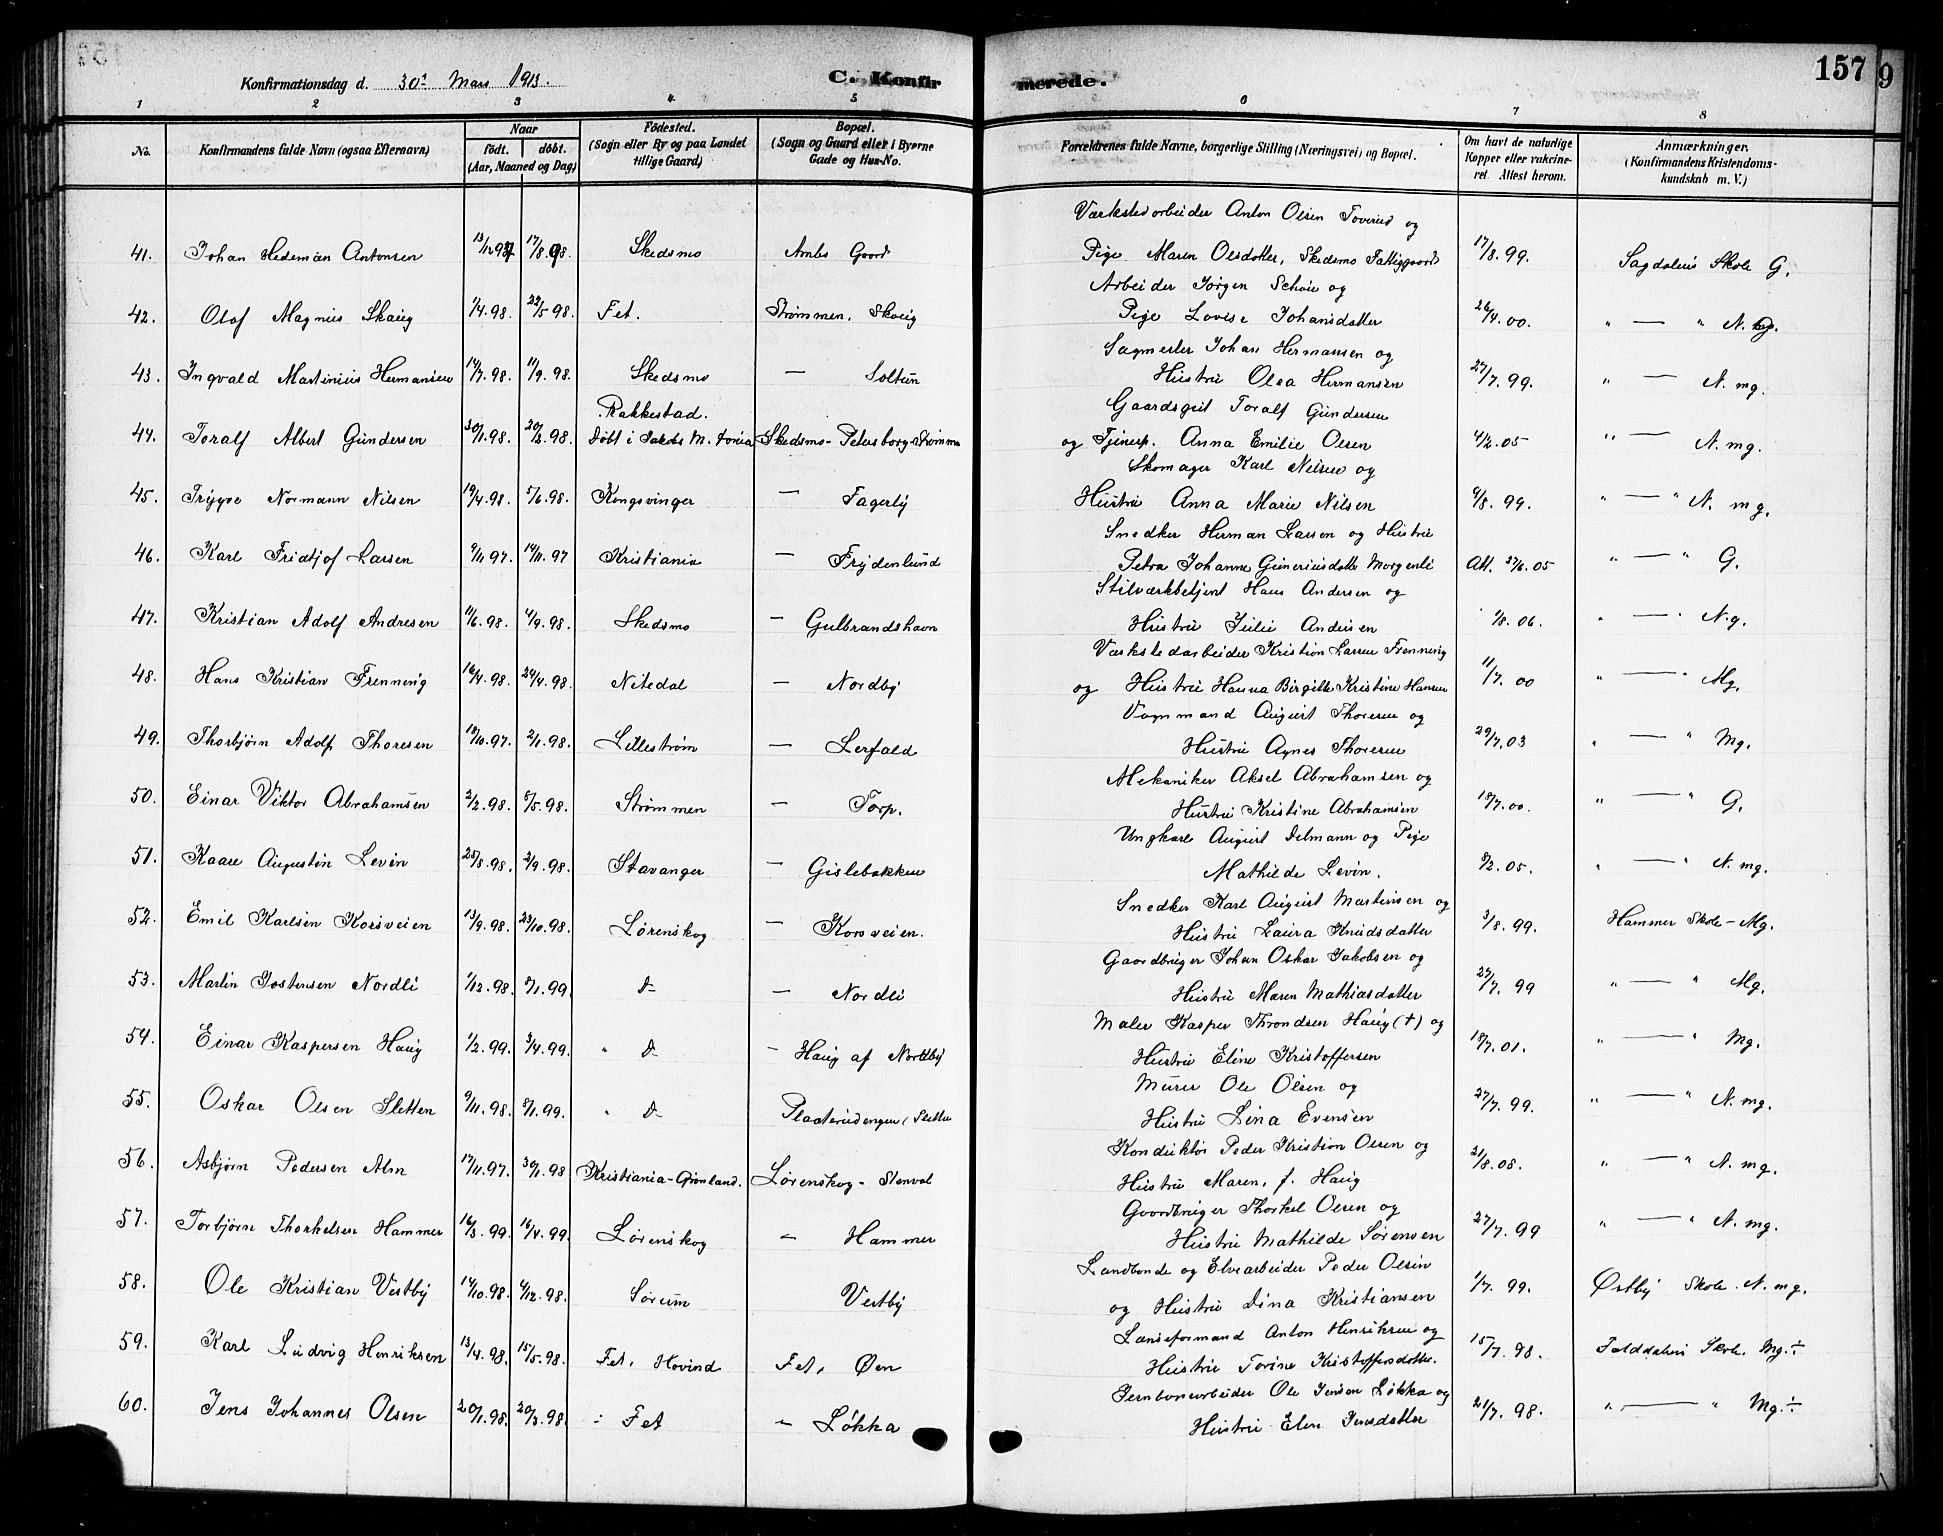 157
9
Konfirmationsdag d. 30' Mars 1913. C. Konfir merede.
1 2 3 4 5 6 7 8
No. Konfirmandens fulde Navn (ogsaa Efternavn) Naar født. døbt. (Aar, Maaned og Dag) Fødested. (Sogn eller By og paa Landet tillige Gaard) Bopæl. (Sogn og Gaard eller i Byerne Gade og Hus-No. Forældrenes fulde Navne, borgerlige Stilling (Næringsvei) og Bopæl. Om havt de naturlige Kopper eller vakcineret. Attest herom. Anmærkninger. (Konfirmandens Kristendomskundskab m. V.)
Værkstedarbeider Anton Olsen Toverud og
41. Johan Hedeman Antonsen 13/12 97 17/8.98. Skedsmo Ambs Gaard Pige Maren Olsdatter, Skedsmo Fattiggaard 17/8.99. Sagdalens Skole G.
Arbeider Jørgen Schøie og
42. Olaf Magnus Skaug 1/4.98. 22/5.98. Fet. Strømmen, Skaug Pige Lovise Johansdatter 26/4.00. " — " N. g.
Sagmester Johan Hermansen og
43. Ingvald Martinius Hermansen 14/7.98. 11/9.98. Skedsmo — Soltun Hustru Olea Hermansen 27/7.99. " — N. mg.
Rakkestad. Gaardsgut Toralf Gundersen
44. Toralf Albert Gundersen 30/1.98. 20/2.98. Døbt i Jakobs M. Kr.ia Skedsmo - Petersborg Strømmen og Tjenesp. Anna Emilie Olsen 4/2.05 " — N. mg.
Skomager Karl Nilsen og
45. Trygve Normann Nilsen 19/4.98. 5/6.98. Kongsvinger — Fagerly Hustru Anna Marie Nilsen 9/8.99. " — " N. mg.
Snedker Herman Larsen og Hustru
46. Karl Fridtjof Larsen 9/11.97. 14/11.97 Kristiania — Frydenlund Petra Johanne Guneriusdatter Morgenli Att. 27/6.05 " — " G.
Stilværkbetjent Hans Andersen og
47. Kristian Adolf Andresen 11/6.98. 4/9.98. Skedsmo — Gulbrandshavn Hustru Julie Andersen 1/8.06. " — " N.g.
Værkstedarbeider Kristian Larsen Frenning
48. Hans Kristian Frenning 16/4.98. 24/4.98. Nitedal — Nordby og Hustru Hanna Birgitte Kristine Hansen 11/7.00 " — " Mg.
Vognmand August Thoresen og
49. Thorbjørn Adolf Thoresen 18/10.97. 2/1.98. Lillestrøm — Lerfald Hustru Agnes Thoresen 29/7.03 " — " Mg.
Mekaniker Aksel Abrahamsen og
50. Einar Viktor Abrahamsen 2/2.98. 8/5.98. Strømmen — Torp. Hustru Kristine Abrahamsen 18/7.00. " — " G.
Ungkarl August Dilmann og Pige
51. Kaare Augustin Levin 25/8.98. 2/9.98. Stavanger — Gislebakken Mathilde Levin. 8/2.05. " — " N. mg.
Snedker Karl August Martinsen og
52. Emil Karlsen Korsveien 13/9.98. 23/10.98. Lørenskog — Korsveien. Hustru Laura Knudsdatter 3/8.99. Hammer Skole - Mg.
Gaardbruger Johan Oskar Jakobsen og
53. Martin Jostensen Nordli 1/12.98. 8/1.99. D- — Nordli Hustru Maren Mathiasdatter 27/7.99 " — " Mg.
Maler Kasper Throndsen Haug (+) og
54. Einar Kaspersen Haug 1/2.99. 3/4.99. " D- — Haug af Nordby Hustru Eline Kristoffersen 18/7.01. " — " Mg.
Murer Ole Olsen og
55. Oskar Olsen Sletten 9/11.98. 8/1.99. " D- Pladterudengen (Sletten Hustru Lina Evensen 27/7.99. " — " N. mg.
Konduktør Peder Kristian Olsen og
56. Asbjørn Pedersen Alm 17/11.97. 30/1.98 Kristiania - Grønland. Lørenskog - Stenval Hustru Maren, f. Haug 21/8.08. " — " N. mg.
Gaardbruger Thorkel Olsen og
57. Torbjørn Thorkelsen Hammer 16/3.99. 16/4.99. Lørenskog — Hammer Hustru Mathilde Sørensen 27/7.99 " — " N. mg.
Landbonde og Elvearbeider Peder Olsen
58. Ole Kristian Vestby 14/10.98. 4/12.98. Sørum Vestby og Hustru Dina Kristiansen 1/7.99. Østby Skole N. mg.
Lænseformand Anton Henriksen og
59. Karl Ludvig Henriksen 13/4.98. 15/5.98. Fet, Hovind Fet, Øen Hustru Torine Kristoffersdatter. 15/7.98. Falddalens Skole. Mg.÷
Jernbanearbeider Ole Jensen Løkka og
60. Jens Johannes Olsen 20/1.98. 20/3.98. " Fet — Løkka Hustru Elen Jensdatter 21/7.98. " — " Mg.÷